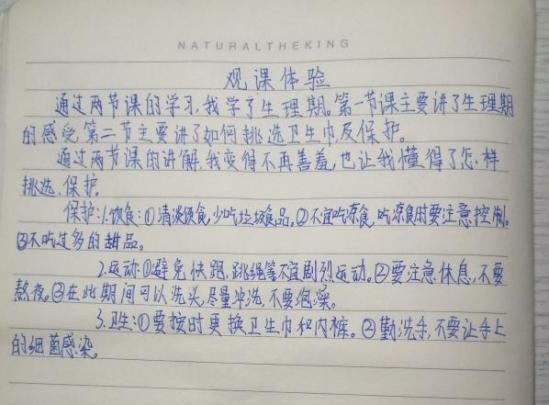 NATURALTHEKING
观课体验
通过两节课的学习,我学了生理期。第一节课主要讲了生理期
的感受第二节主要讲了如何挑选卫生巾及保护。
通过两节课的讲解,我变得不再善羞,也让我懂得了怎样
挑选、保护。
保护:1.饮食:①清淡饮食,少吃垃圾食品。②不宜吃凉食,吃凉食时要注意控制。
③不吃过多的甜品。
2.运动:①避免快跑、跳绳等不宜剧烈运动。②要注意休息,不要
熬夜。③在此期间可以洗头,尽量冲洗,不要泡澡。
3.卫生:①要按时更换卫生巾和内裤。②勤洗手,不要让手上
的细菌感染。